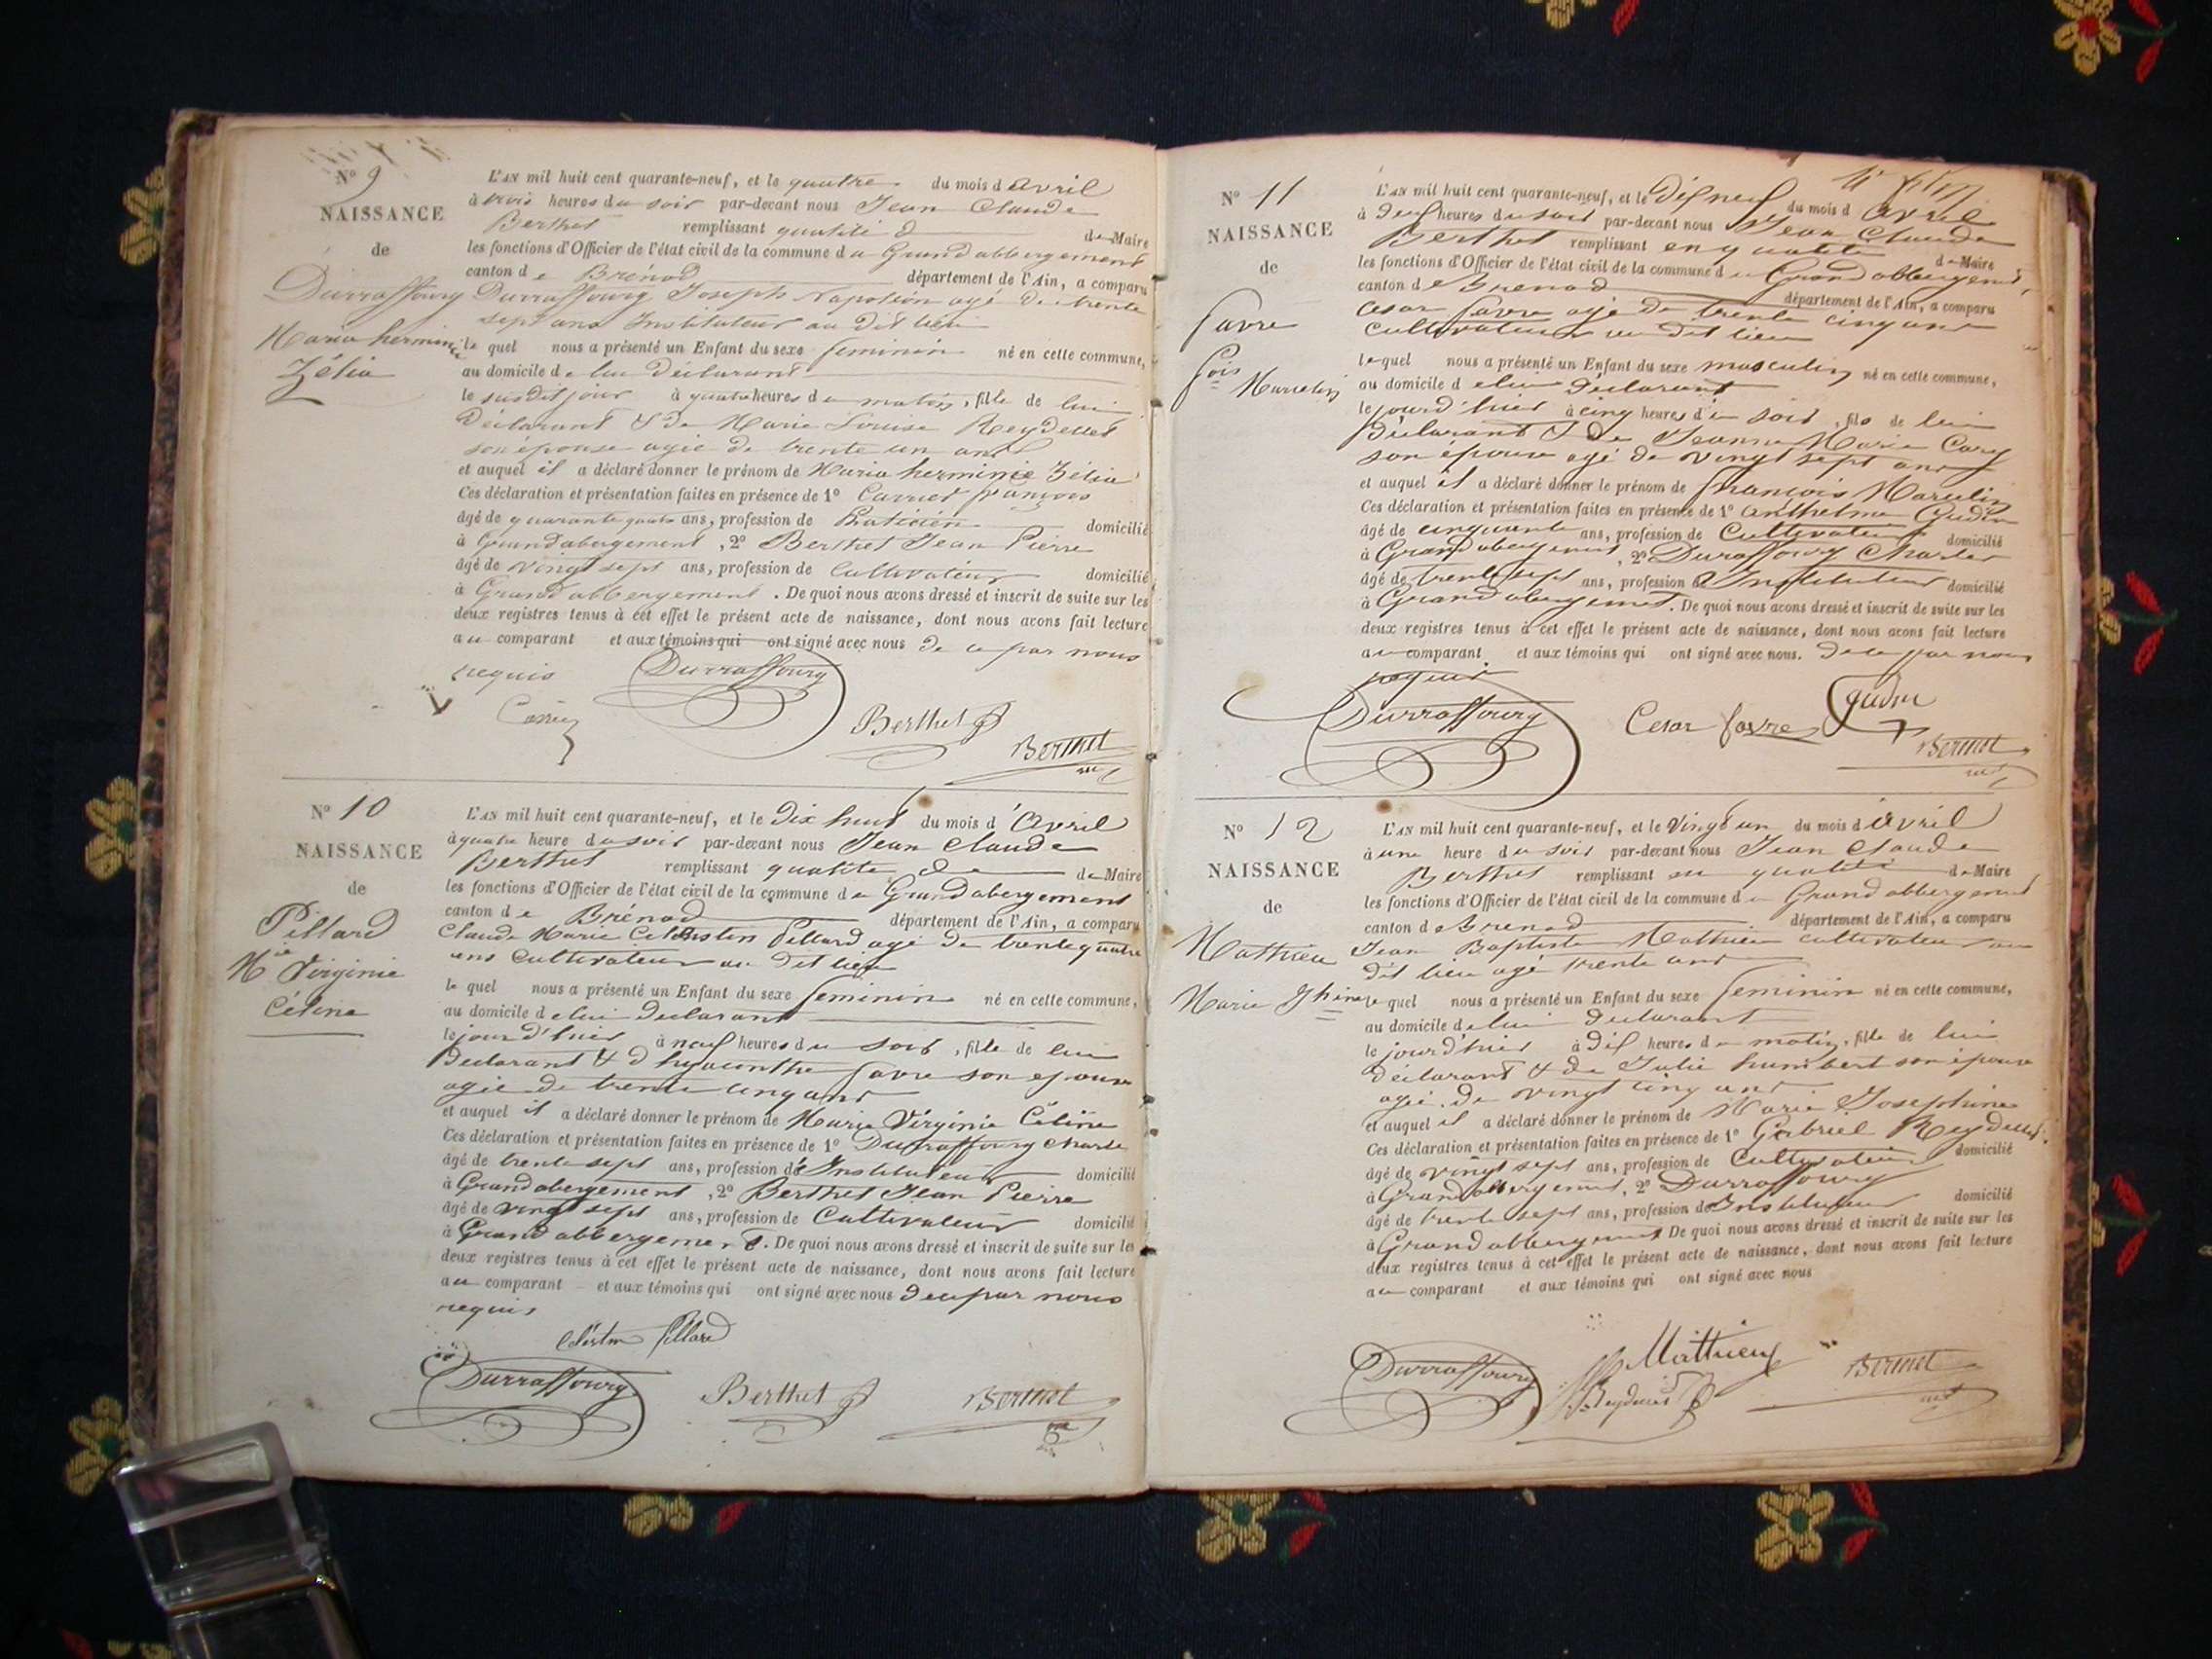 Nº 9
NAISSANCE
de
Durraffourg
Maria herminie
Zélia
L'AN mil huit cent quarante-neuf, et le quatre du mois d'Avril
à trois heures du soir par-devant nous Jean Claude
Berthet remplissant qualité d de Maire
les fonctions d'Officier de l'état civil de la commune du Grand abbergement
canton de Brénod département de l'Ain, a comparu
Durraffourg Joseph Napoléon agé de trente
sept ans Instituteur au dit lieu
lequel nous a présenté un Enfant du sexe feminin né en cette commune,
au domicile de lui declarant
le susdit jour à quatre heures du matin, fille de lui
Déclarant & de Marie Louise Reydellet
son épouse agée de trente un ans
et auquel il a déclaré donner le prénom de Maria herminie Zélia
Ces déclaration et présentation faites en présence de 1º Carrier françois
âgé de quarante quatre ans, profession de Praticien domicilié
à Grand abergement, 2º Berthet Jean Pierre
âgé de vingt sept ans, profession de Cultivateur domicilié
à Grand abbergement. De quoi nous avons dressé et inscrit de suite sur les
deux registres tenus à cet effet le présent acte de naissance, dont nous avons fait lecture
au comparant et aux témoins qui ont signé avec nous de ce par nous
requis
Durraffourg
Berthet
Berthet
Nº 10
NAISSANCE
de
Pillard
Mie Virginie
Céline
L'AN mil huit cent quarante-neuf, et le dix huit du mois d'Avril
à quatre heure du soir par-devant nous Jean Claude
Berthet remplissant qualité de de Maire
les fonctions d'Officier de l'état civil de la commune du Grand abergement
canton de Brénod département de l'Ain, a comparu
Claude Marie Celestin Pillard agé de trente quatre
ans Cultivateur au dit lieu
lequel nous a présenté un Enfant du sexe feminin né en cette commune,
au domicile de lui declarant
le jourd'hier à neuf heures du soir, fille de lui
Declarant & d hyacinthe favre son epouse
agée de trente cinq ans
et auquel il a déclaré donner le prénom de Marie Virginie Céline
Ces déclaration et présentation faites en présence de 1º Durraffourg Charle
âgé de trente sept ans, profession de Instituteur domicilié
à Grand abergement, 2º Berthet Jean Pierre
âgé de vingt sept ans, profession de Cultivateur domicilié
à Grand abbergement. De quoi nous avons dressé et inscrit de suite sur les
deux registres tenus à cet effet le présent acte de naissance, dont nous avons fait lecture
au comparant et aux témoins qui ont signé avec nous de ce par nous
requis
Celestin Pillard
Durraffourg
Berthet
Berthet
Nº 11
NAISSANCE
de
favre
fois
Marcelin
L'AN mil huit cent quarante-neuf, et le Dix neuf du mois d'Avril
à deux heures du soir par-devant nous Jean Claude
Berthet remplissant en qualité de Maire
les fonctions d'Officier de l'état civil de la commune du Grand abbergement
canton de Brenod département de l'Ain, a comparu
Cesar favre agé de trente cinq ans
Cultivateur au dit lieu
lequel nous a présenté un Enfant du sexe masculin né en cette commune,
au domicile de lui déclarant
le jourd'hier à cinq heures du soir, fils de lui
Déclarant & de Jeanne Marie Cary
son épouse agé de vingt sept ans
et auquel il a déclaré donner le prénom de françois Marcelin
Ces déclaration et présentation faites en présence de 1º Anthelme Gudin
âgé de cinquante ans, profession de Cultivateur domicilié
à Grand abergement, 2º Duraffourg Charles
âgé de trente sept ans, profession d Instituteur domicilié
à Grand abergement. De quoi nous avons dressé et inscrit de suite sur les
deux registres tenus à cet effet le présent acte de naissance, dont nous avons fait lecture
au comparant et aux témoins qui ont signé avec nous. de ce par nous
requis
Durraffourg
Cesar favre
Gudin
Berthet
Nº 12
NAISSANCE
de
Mathieu
Marie Jhine
L'AN mil huit cent quarante-neuf, et le Vingt un du mois d'Avril
à une heure du soir par-devant nous Jean Claude
Berthet remplissant en qualité de Maire
les fonctions d'Officier de l'état civil de la commune du Grand abbergement
canton de Brenod département de l'Ain, a comparu
Jean Baptiste Mathieu cultivateur au
dit lieu agé trente ans
lequel nous a présenté un Enfant du sexe feminin né en cette commune,
au domicile de lui declarant
le jourd'hier à dix heures du matin, fille de lui
Déclarant & de Julie humbert son épouse
agée de vingt cinq ans
et auquel il a déclaré donner le prénom de Marie Josephine
Ces déclaration et présentation faites en présence de 1º Gabriel Reydellet
âgé de vingt sept ans, profession de Cultivateur domicilié
à Grand abbergement, 2º Durraffourg
âgé de trente sept ans, profession de Instituteur domicilié
à Grand abbergement De quoi nous avons dressé et inscrit de suite sur les
deux registres tenus à cet effet le présent acte de naissance, dont nous avons fait lecture
au comparant et aux témoins qui ont signé avec nous
Mathieu
Durraffourg
Reydellet
Berthet